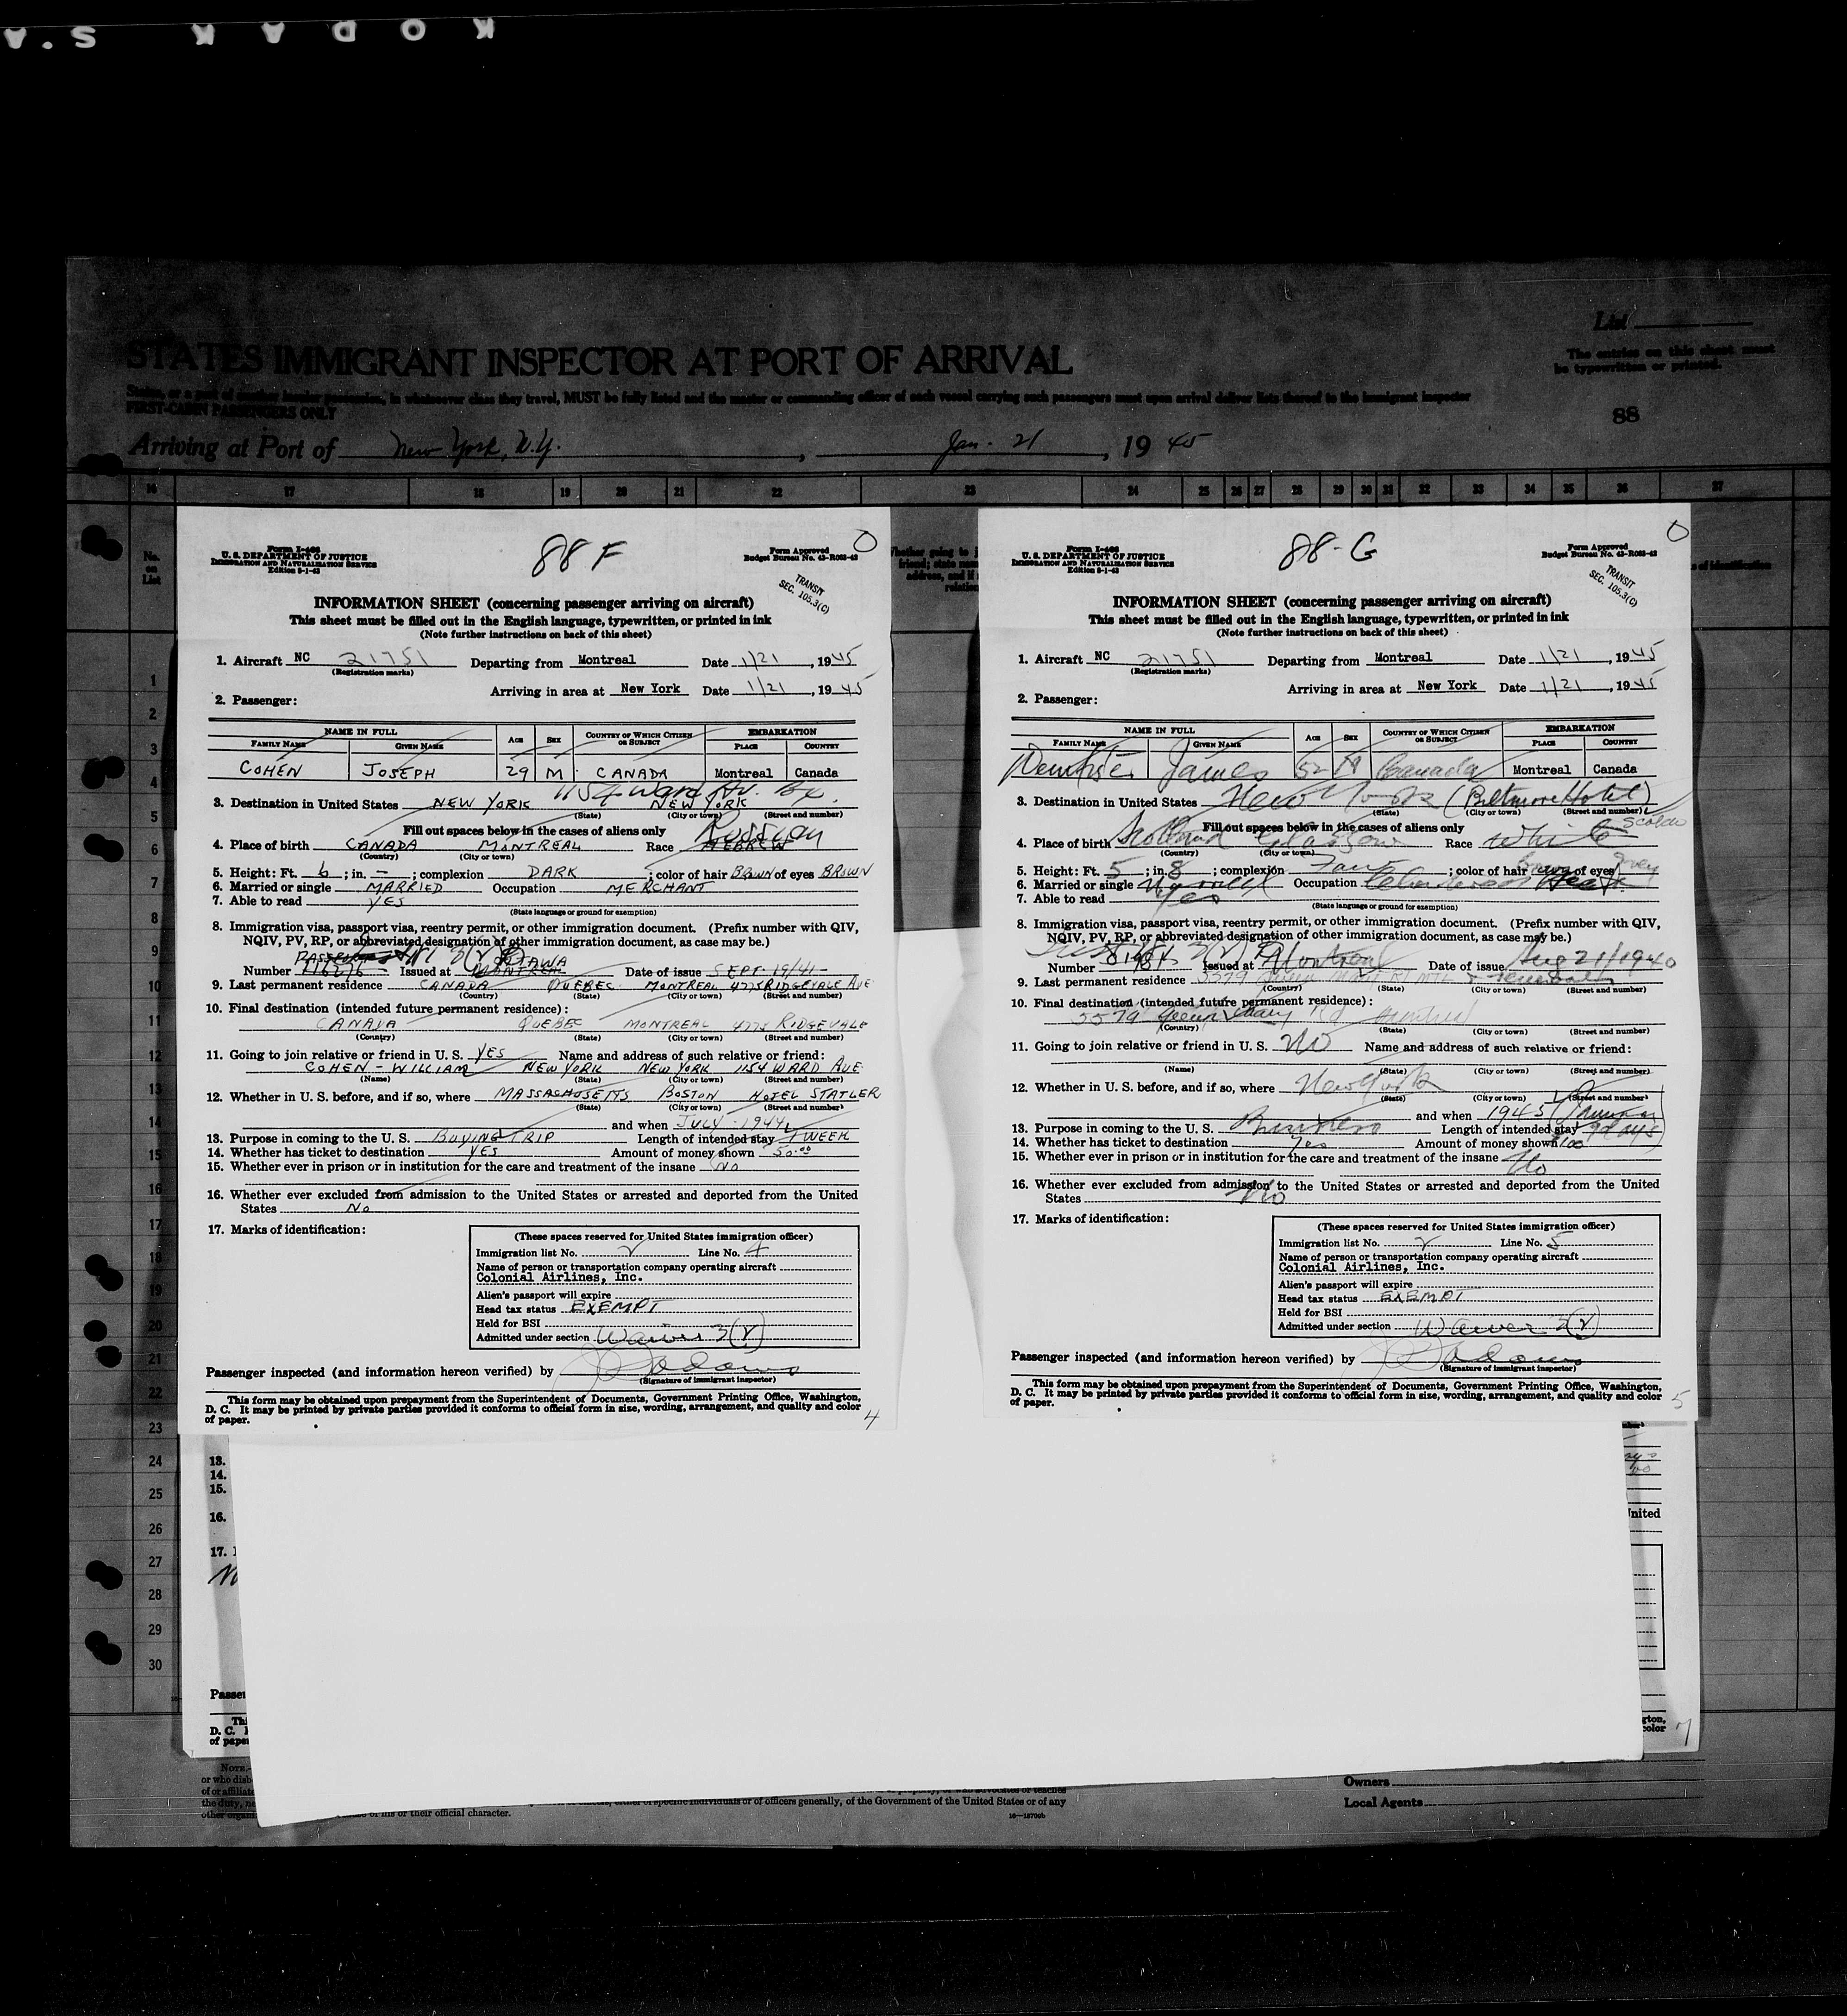 KODAK S.A.
List
STATES IMMIGRANT INSPECTOR AT PORT OF ARRIVAL
The entries on this sheet must
be typewritten or printed.
States, or a port of another insular possession, in whatsoever class they travel, MUST be fully listed and the master or commanding officer of each vessel carrying such passengers must upon arrival deliver lists thereof to the immigrant inspector
FIRST-CABIN PASSENGERS ONLY
88
Arriving at Port of New York, N.Y., Jan. 21, 1945
16 17 18 19 20 21 22 23 24 25 26 27 28 29 30 31 32 33 34 35 36 37
No. on List
1
2
3
4
5
6
7
8
9
10
11
12
13
14
15
16
17
18
19
20
21
22
23
24
25
26
27
28
29
30
88 F
0
Form I-466
U. S. DEPARTMENT OF JUSTICE
IMMIGRATION AND NATURALIZATION SERVICE
Edition 5-1-43
Form Approved
Budget Bureau No. 43-R083-43
TRANSIT
SEC. 105.3(C)
INFORMATION SHEET (concerning passenger arriving on aircraft)
This sheet must be filled out in the English language, typewritten, or printed in ink
(Note further instructions on back of this sheet)
1. Aircraft NC 21751 Departing from Montreal Date 1/21, 1945
(Registration marks)
Arriving in area at New York Date 1/21, 1945
2. Passenger:
NAME IN FULL AGE SEX COUNTRY OF WHICH CITIZEN OR SUBJECT EMBARKATION
FAMILY NAME GIVEN NAME PLACE COUNTRY
COHEN JOSEPH 29 M CANADA Montreal Canada
1154 Ward Av. Bx.
3. Destination in United States NEW YORK NEW YORK
(State) (City or town) (Street and number)
Fill out spaces below in the cases of aliens only
Russian
4. Place of birth CANADA MONTREAL Race HEBREW
(Country) (City or town)
5. Height: Ft. 6; in. -; complexion DARK; color of hair BROWN of eyes BROWN
6. Married or single MARRIED Occupation MERCHANT
7. Able to read YES
(State language or ground for exemption)
8. Immigration visa, passport visa, reentry permit, or other immigration document. (Prefix number with QIV,
NQIV, PV, RP, or abbreviated designation of other immigration document, as case may be.)
OTTAWA
Number Issued at MONTREAL Date of issue SEPT-19/41-
9. Last permanent residence CANADA QUEBEC MONTREAL 4775 RIDGEVALE AVE
(Country) (State) (City or town) (Street and number)
10. Final destination (intended future permanent residence):
CANADA QUEBEC MONTREAL 4775 RIDGEVALE
(Country) (State) (City or town) (Street and number)
11. Going to join relative or friend in U. S. YES Name and address of such relative or friend:
COHEN - WILLIAM NEW YORK NEW YORK 1154 WARD AVE
(Name) (State) (City or town) (Street and number)
12. Whether in U. S. before, and if so, where MASSACHUSETTS BOSTON HOTEL STATLER
(State) (City or town) (Street and number)
and when JULY-1944
13. Purpose in coming to the U. S. BUYING TRIP Length of intended stay 1 WEEK
14. Whether has ticket to destination YES Amount of money shown 50.00
15. Whether ever in prison or in institution for the care and treatment of the insane NO
16. Whether ever excluded from admission to the United States or arrested and deported from the United
States NO
17. Marks of identification:
(These spaces reserved for United States immigration officer)
Immigration list No. 2 Line No. 4
Name of person or transportation company operating aircraft
Colonial Airlines, Inc.
Alien's passport will expire
Head tax status EXEMPT
Held for BSI
Admitted under section Waiver 3(2)
Passenger inspected (and information hereon verified) by
(Signature of immigrant inspector)
This form may be obtained upon prepayment from the Superintendent of Documents, Government Printing Office, Washington,
D. C. It may be printed by private parties provided it conforms to official form in size, wording, arrangement, and quality and color
of paper.
4
88-G
0
Form I-466
U. S. DEPARTMENT OF JUSTICE
IMMIGRATION AND NATURALIZATION SERVICE
Edition 5-1-43
Form Approved
Budget Bureau No. 43-R083-43
TRANSIT
SEC. 105.3(C)
INFORMATION SHEET (concerning passenger arriving on aircraft)
This sheet must be filled out in the English language, typewritten, or printed in ink
(Note further instructions on back of this sheet)
1. Aircraft NC 21751 Departing from Montreal Date 1/21, 1945
(Registration marks)
Arriving in area at New York Date 1/21, 1945
2. Passenger:
NAME IN FULL AGE SEX COUNTRY OF WHICH CITIZEN OR SUBJECT EMBARKATION
FAMILY NAME GIVEN NAME PLACE COUNTRY
Dempster James 52 M Canada Montreal Canada
3. Destination in United States New York (Biltmore Hotel)
(State) (City or town) (Street and number)
Fill out spaces below in the cases of aliens only
4. Place of birth Scotland Glasgow Race White
(Country) (City or town)
5. Height: Ft. 5; in. 8; complexion; color of hair of eyes grey
6. Married or single Occupation
7. Able to read Yes
(State language or ground for exemption)
8. Immigration visa, passport visa, reentry permit, or other immigration document. (Prefix number with QIV,
NQIV, PV, RP, or abbreviated designation of other immigration document, as case may be.)
Number Issued at Montreal Date of issue Aug 21/1940
9. Last permanent residence 5579 Queen Mary Rd Mtl
(Country) (State) (City or town) (Street and number)
10. Final destination (intended future permanent residence):
5579 Queen Mary Rd Montreal
(Country) (State) (City or town) (Street and number)
11. Going to join relative or friend in U. S. No Name and address of such relative or friend:
(Name) (State) (City or town) (Street and number)
12. Whether in U. S. before, and if so, where New York
(State) (City or town) (Street and number)
and when 1945
13. Purpose in coming to the U. S. Business Length of intended stay 9 days
14. Whether has ticket to destination Yes Amount of money shown 100
15. Whether ever in prison or in institution for the care and treatment of the insane No
16. Whether ever excluded from admission to the United States or arrested and deported from the United
States No
17. Marks of identification:
(These spaces reserved for United States immigration officer)
Immigration list No. 2 Line No. 5
Name of person or transportation company operating aircraft
Colonial Airlines, Inc.
Alien's passport will expire
Head tax status EXEMPT
Held for BSI
Admitted under section Waiver 3(2)
Passenger inspected (and information hereon verified) by
(Signature of immigrant inspector)
This form may be obtained upon prepayment from the Superintendent of Documents, Government Printing Office, Washington,
D. C. It may be printed by private parties provided it conforms to official form in size, wording, arrangement, and quality and color
of paper.
5
13.
14.
15.
16.
17.
7
Owners
Local Agents
of specific individuals or of officers generally, of the Government of the United States or of any
of his or their official character.